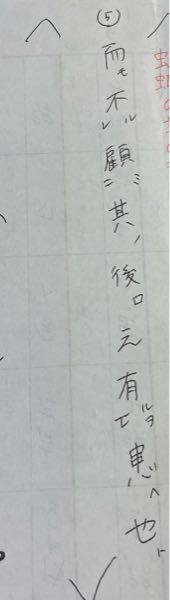 ⑤ 而モ不ルレ顧ミニ其ノ後ロ之有ルヲ患ヘ也ト